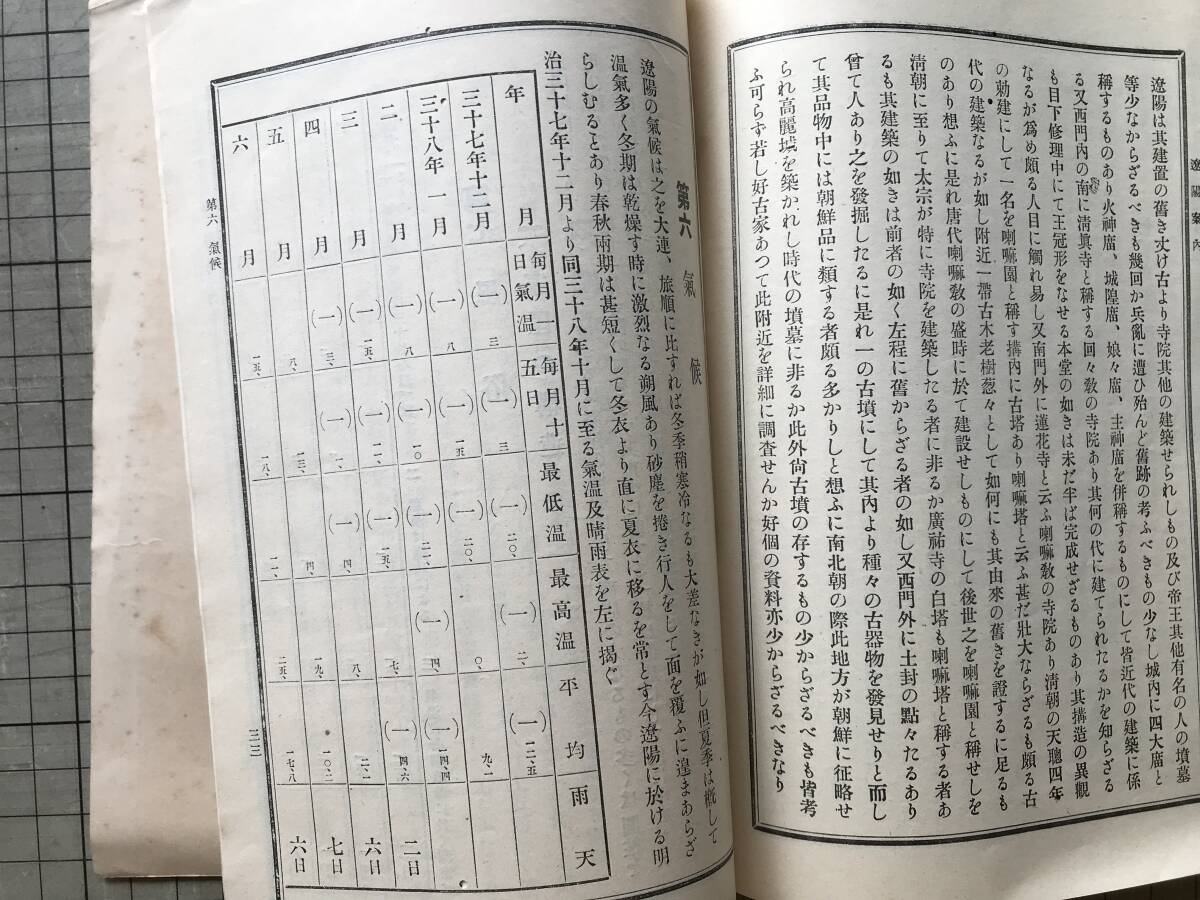 遼陽案內
遼陽は其建置の舊き丈け古より寺院其他の建築せられしもの及び帝王其他有名の人の墳墓
等少なからざるべきも幾回か兵亂に遭ひ殆んど舊跡の考ふべきもの少なし城內に四大廟と
稱するものあり火神廟、城隍廟、娘々廟、主神廟を併稱するものにして皆近代の建築に係
る又西門內の南に淸眞寺と稱する回々敎の寺院あり其何の代に建てられたるかを知らざる
も目下修理中にて王冠形をなせる本堂の如きは未だ半ば完成せざるものあり其搆造の異觀
なるが爲め頗る人目に觸れ易し又南門外に蓮花寺と云ふ喇嘛敎の寺院あり淸朝の天聰四年
の勅建にして一名を喇嘛園と稱す搆內に古塔あり喇嘛塔と云ふ甚だ壯大ならざるも頗る古
代の建築なるが如し附近一帶古木老樹葱々として如何にも其由來の舊きを證するに足るも
のあり想ふに是れ唐代喇嘛敎の盛時に於て建設せしものにして後世之を喇嘛園と稱せしを
淸朝に至りて太宗が特に寺院を建築したる者に非るか廣祐寺の白塔も喇嘛塔と稱する者あ
るも其建築の如きは前者の如く左程に舊からざる者の如し又西門外に土封の點々たるあり
曾て人あり之を發掘したるに是れ一の古墳にして其內より種々の古器物を發見せりと而し
て其品物中には朝鮮品に類する者頗る多かりしと想ふに南北朝の際此地方が朝鮮に征略せ
られ高麗城を築かれし時代の墳墓に非るか此外尙古墳の存するもの少からざるべきも皆考
ふ可らず若し好古家あつて此附近を詳細に調査せんか好個の資料亦少からざるべきなり
第六 氣候
遼陽の氣候は之を大連、旅順に比すれば冬季稍寒冷なるも大差なきが如し但夏季は槪して
溫氣多く冬期は乾燥す時に激烈なる朔風あり砂塵を捲き行人をして面を覆ふに遑まあらざ
らしむるとあり春秋雨期は甚短くして冬衣より直に夏衣に移るを常とす今遼陽に於ける明
治三十七年十二月より同三十八年十月に至る氣溫及晴雨表を左に揭ぐ
年 月 每月一日氣溫 每月十五日 最低溫 最高溫 平均 雨天
三十七年十二月 (一)三 (一)三 (一)二〇、 (一)二、 (一)一二、五
三十八年一月 (一)八 (一)一五、 (一)二〇、 〇、 九、一
二月 (一)八 (一)一〇、 (一)二一、 (一)四、 (一)四、四
三月 (一)一五、 (一)二、 (一)一五、 七、 (一)四、六 二日
四月 (一)三、 (一)一、 (一)四、 八、 二、一 六日
五月 八、 一三、 四、 一九、 一〇、二 七日
六月 一五、 一八、 一一、 二五、 一七、八 六日
第六 氣候
三三